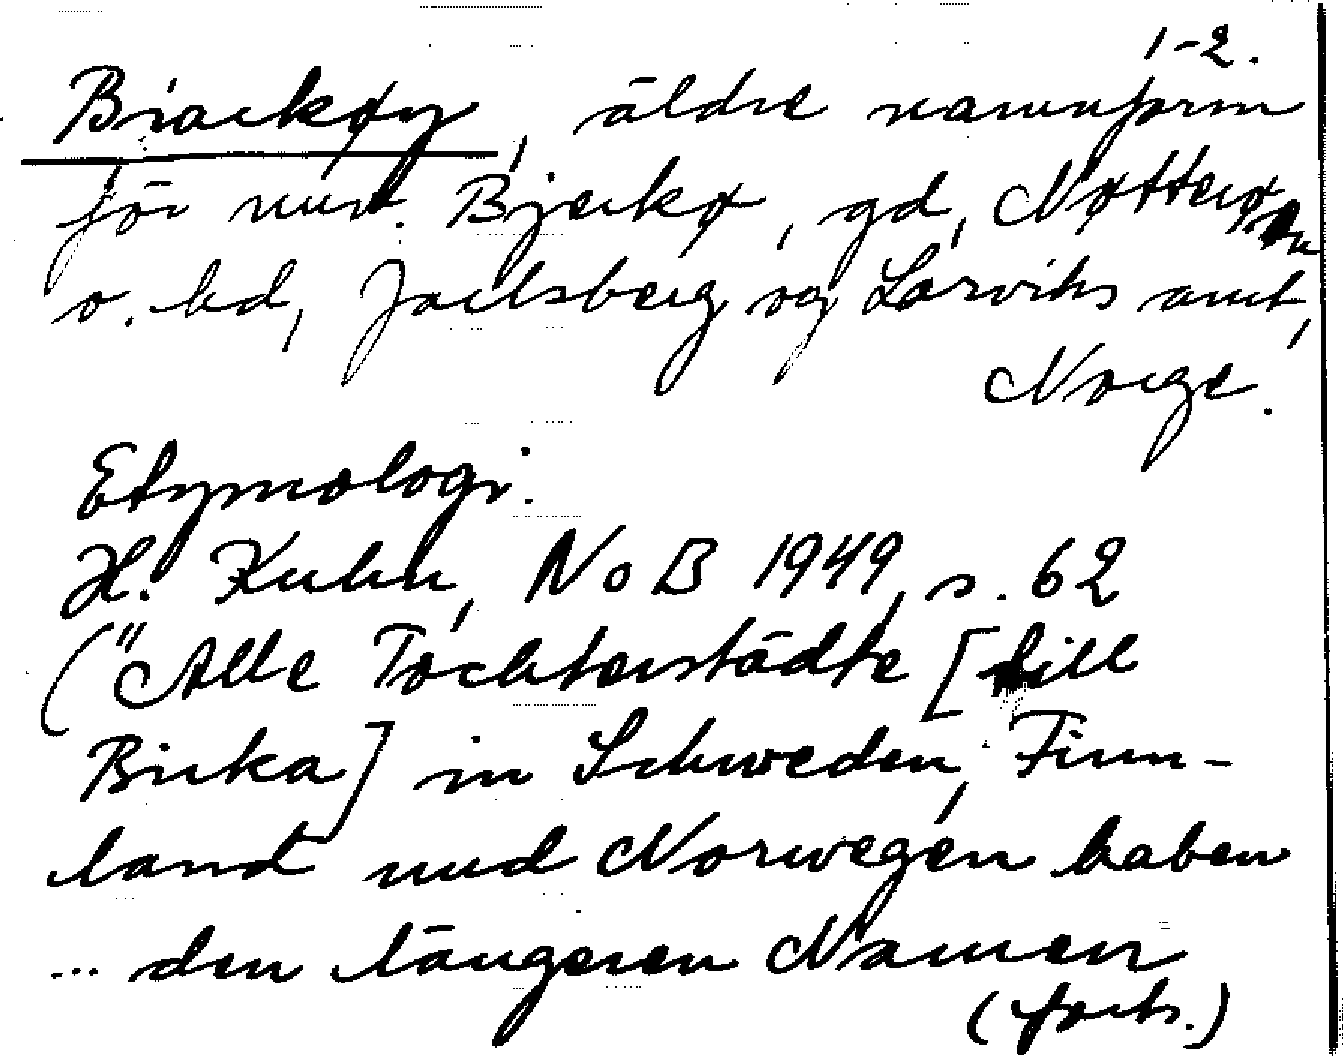 1-2.
Biarkøy, äldre namnform
för nuv. Bjerkø, gd, Nøtterøen
o. hd, Jarlsberg og Larviks amt,
Norge.
Etymologi:
H. Kuhn, NoB 1949, s. 62
("Alle Tochterstädte [till
Birka] in Schweden, Finn-
land und Norwegen haben
... den längeren Namen
(forts.)